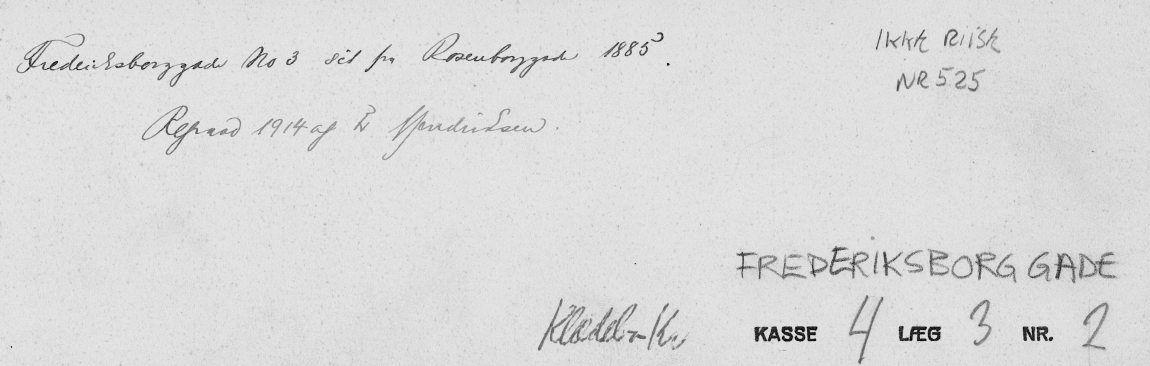 Frederiksborggade No 3 set fra Rosenborggade 1885.
Repr. 1914 af Fr Hendriksen.
Ikke Riise
NR 525
FREDERIKSBORG GADE
KASSE 4 LÆG 3 NR. 2